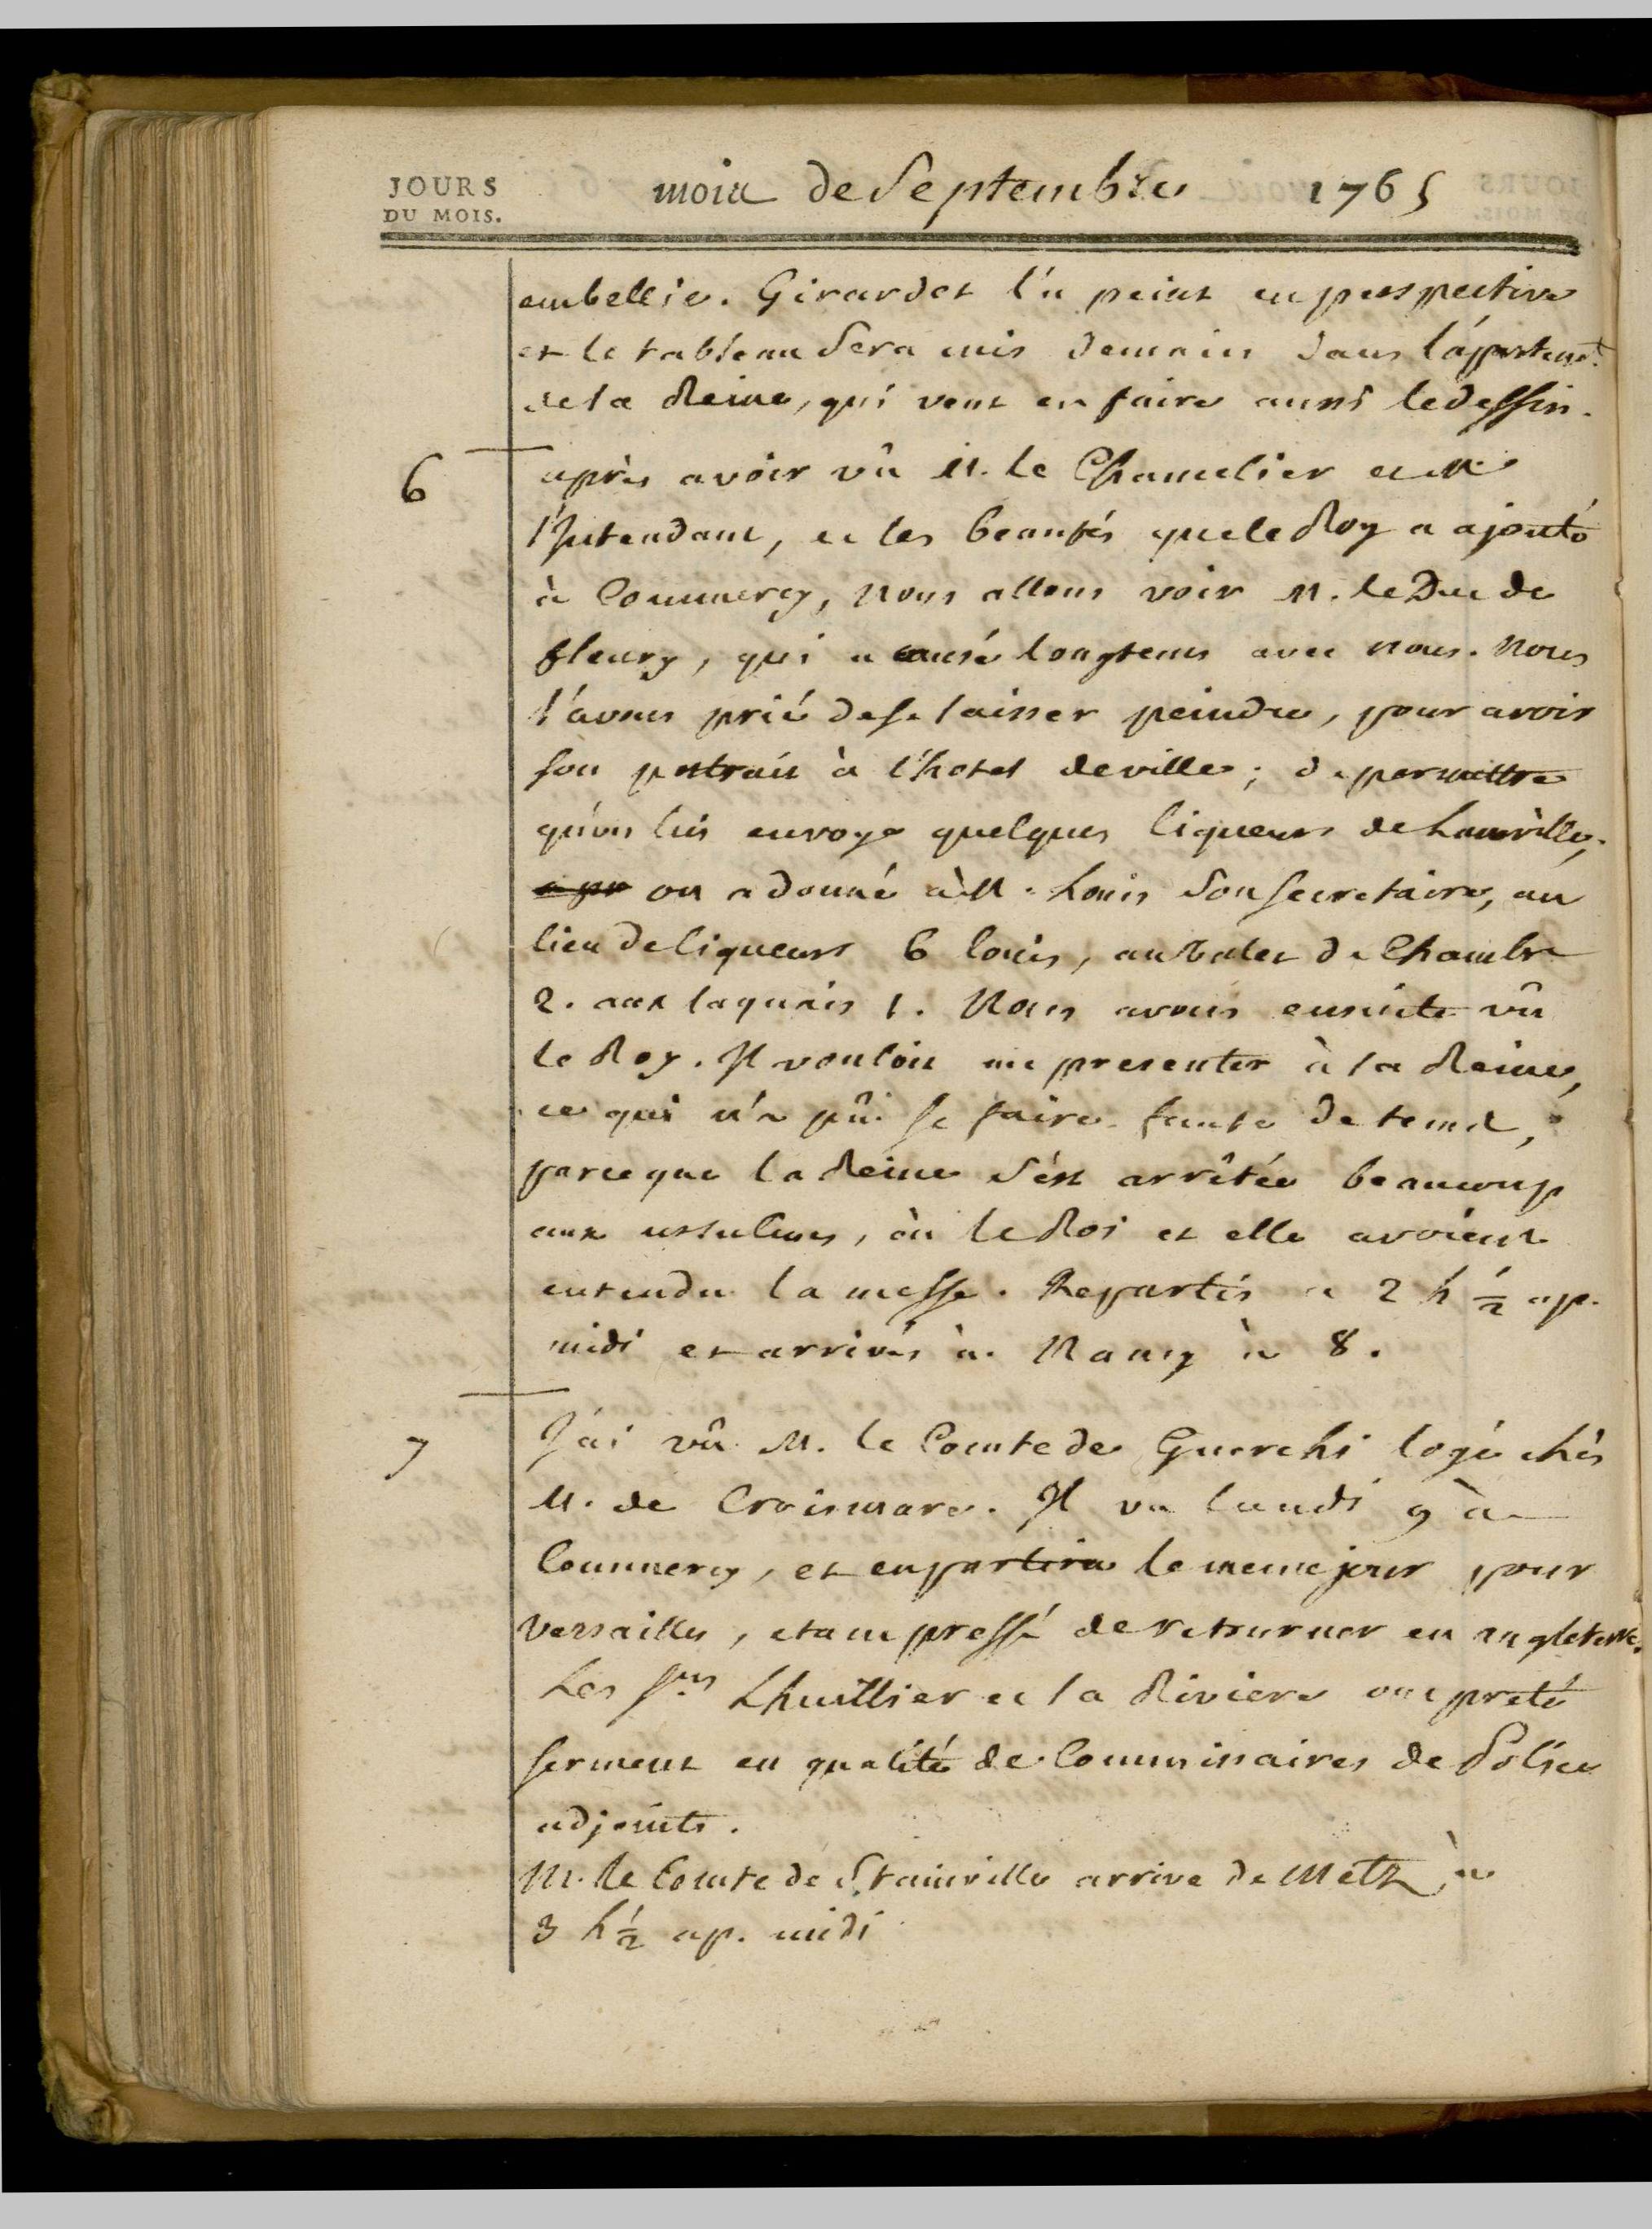 JOURS
DU MOIS.
mois de Septembre 1765
embellie. Girardet l'a peint en perspective
et le tableau sera mis demain dans l'appartemt.
de la Reine, qui veut en faire aussi le dessin.
6 après avoir vû M. le Chancelier et M.
l'Intendant, et les beautés que le Roy a ajouté
à Commercy, nous allons voir M. le Duc de
fleury, qui a causé longtems avec nous. Nous
l'avons prié de se laisser peindre, pour avoir
son portrait à l'hotel de ville; de permettre
qu'on lui envoye quelques liqueurs de Luneville,
on a donné à M. Louis son secretaire, au
lieu de liqueurs 6 louis, au valet de Chambre
2. aux laquais 1. Nous avons ensuite vû
le Roy. Il vouloit me presenter à la Reine,
ce qui n'a pû se faire faute de tems,
parceque la Reine s'est arrêtée beaucoup
aux ursulines, où le Roi et elle avoient
entendu la messe. Repartis à 2 h ½ ap.
midi et arrivés à Nancy à 8.
7 J'ai vû M. le Comte de Guerchi logé chés
M. de Croismare. Il va lundi 9 à
Commercy, et en partira le meme jour pour
Versailles, etant pressé de retourner en angleterre.
Les Srs Lhuillier et la Riviere ont preté
serment en qualité de Commissaires de Police
adjoints.
M. le Comte de Stainville arrive de Metz à
3 h ½ ap. midi